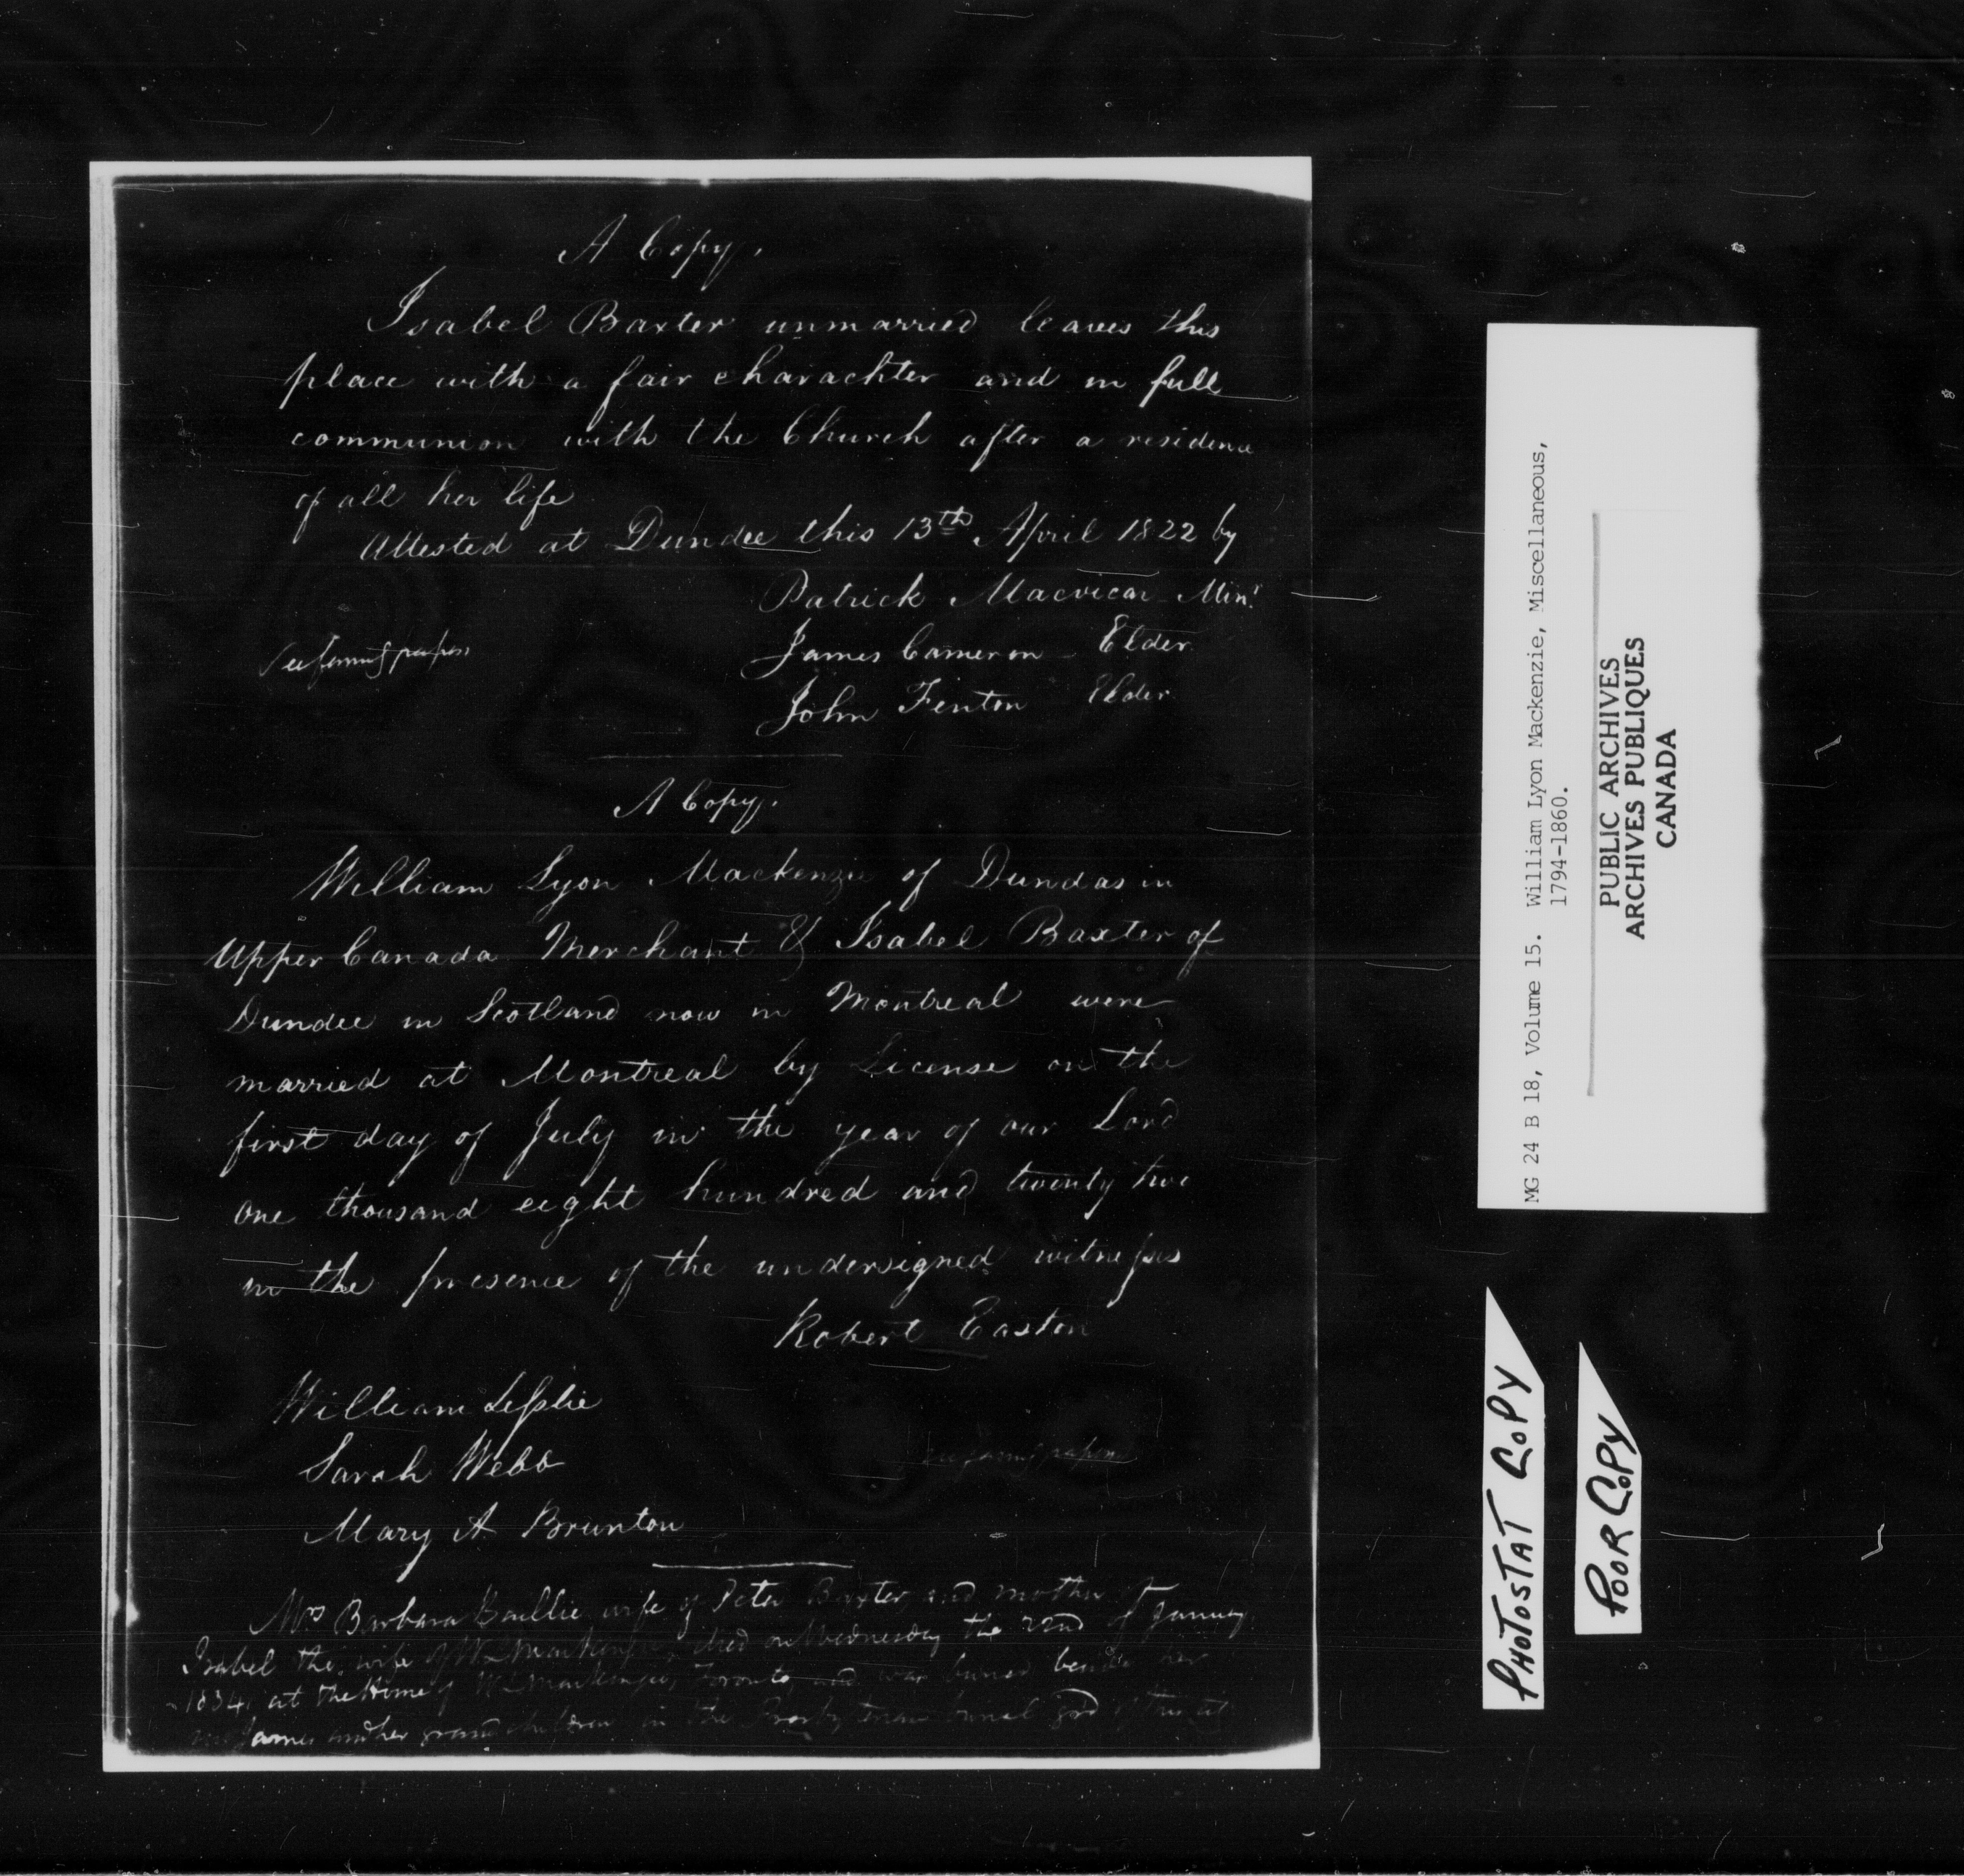 A Copy.
Isabel Baxter unmarried leaves this
place with a fair charachter and in full
communion with the Church after a residence
of all her life
Attested at Dundee this 13th April 1822 by
Patrick Macvicar Minr
James Cameron Elder
John Fenton Elder
A Copy.
William Lyon Mackenzie of Dundas in
Upper Canada Merchant & Isabel Baxter of
Dundee in Scotland now in Montreal were
married at Montreal by License on the
first day of July in the year of our Lord
one thousand eight hundred and twenty two
in the presence of the undersigned witnesses
Robert Easton
William Leslie
Sarah Webb
Mary A Brunton
Mrs Barbara Baillie wife of Peter Baxter and mother of
Isabel the wife of WL Mackenzie died on Wednesday the 22nd of January
1834, at the Home of WL Mackenzie, Toronto and was buried beside her
James and her grand children in the Presbyterian burial
MG 24 B 18, Volume 15. William Lyon Mackenzie, Miscellaneous,
1794-1860.
PUBLIC ARCHIVES
ARCHIVES PUBLIQUES
CANADA
PHOTOSTAT COPY
POOR COPY